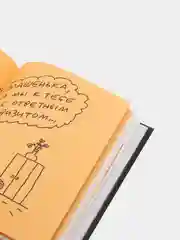 МАШЕНЬКА,
А МЫ К ТЕБЕ
С ОТВЕТНЫМ
ВИЗИТОМ...